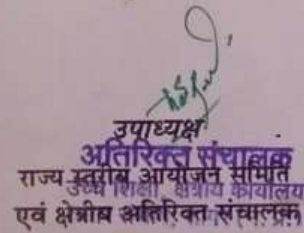 उपाध्यक्ष
अतिरिक्त संचालक
राज्य स्तरीय आयोजन समिति
उच्च शिक्षा, क्षेत्रीय कार्यालय
एवं क्षेत्रीय अतिरिक्त संचालक